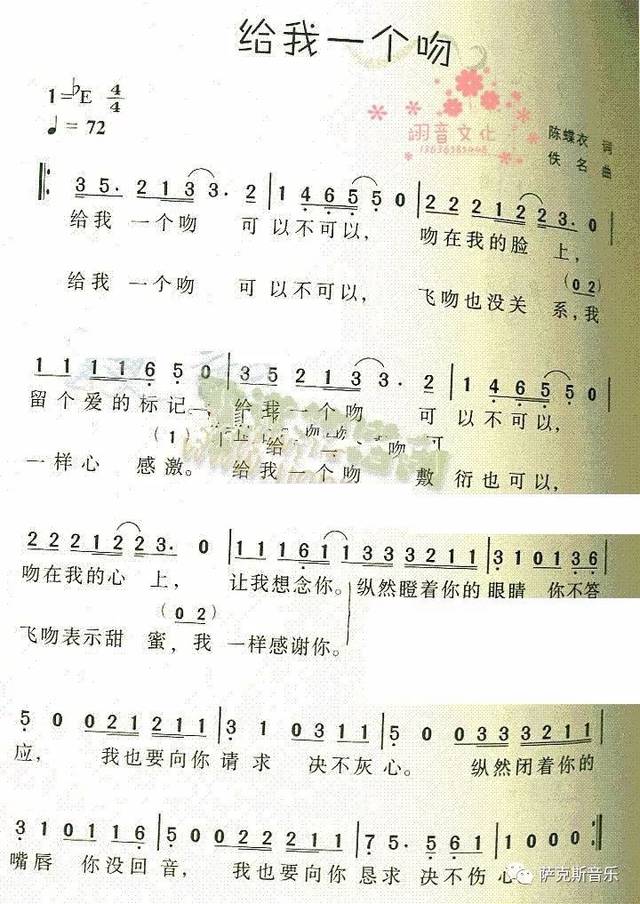 给我一个吻
1=♭E 4/4
♩=72
翊音文化
陈蝶衣 词
佚名 曲
3 5. 2 1 3 3. 2 | 1 4 6 5 5 0 | 2 2 2 1 2 2 3. 0 |
给我 一个吻 可以不可以, 吻在我的脸 上,
(0 2)
给我 一个吻 可以不可以, 飞吻也没关 系,我
1 1 1 1 6 5 0 | 3 5 2 1 3 3. 2 | 1 4 6 5 5 0 |
留个爱的标记, 给我一个吻 可以不可以,
(1)
一样心 感激。 给我一个吻 敷衍也可以,
2 2 2 1 2 2 3. 0 | 1 1 1 6 1 1 3 3 3 3 2 1 1 | 3 1 0 1 3 6 |
吻在我的心 上, 让我想念你。纵然瞪着你的 眼睛 你不答
(0 2)
飞吻表示甜 蜜,我 一样感谢你。
5 0 0 2 1 2 1 1 | 3 1 0 3 1 1 | 5 0 0 3 3 3 2 1 1 |
应, 我也要向你 请求 决不灰心。 纵然闭着你的
3 1 0 1 1 6 | 5 0 0 2 2 2 1 1 | 7 5. 5 6 6 | 1 0 0 0
嘴唇 你没回音, 我也要向你 恳求 决不伤心
萨克斯音乐